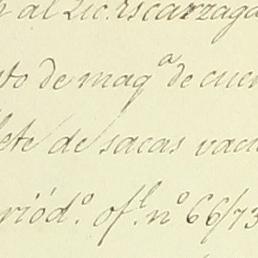 al Lic. Iscarzaga
to de maqª de cue
ete de sacas vac
riód.º of.l nº 66/73